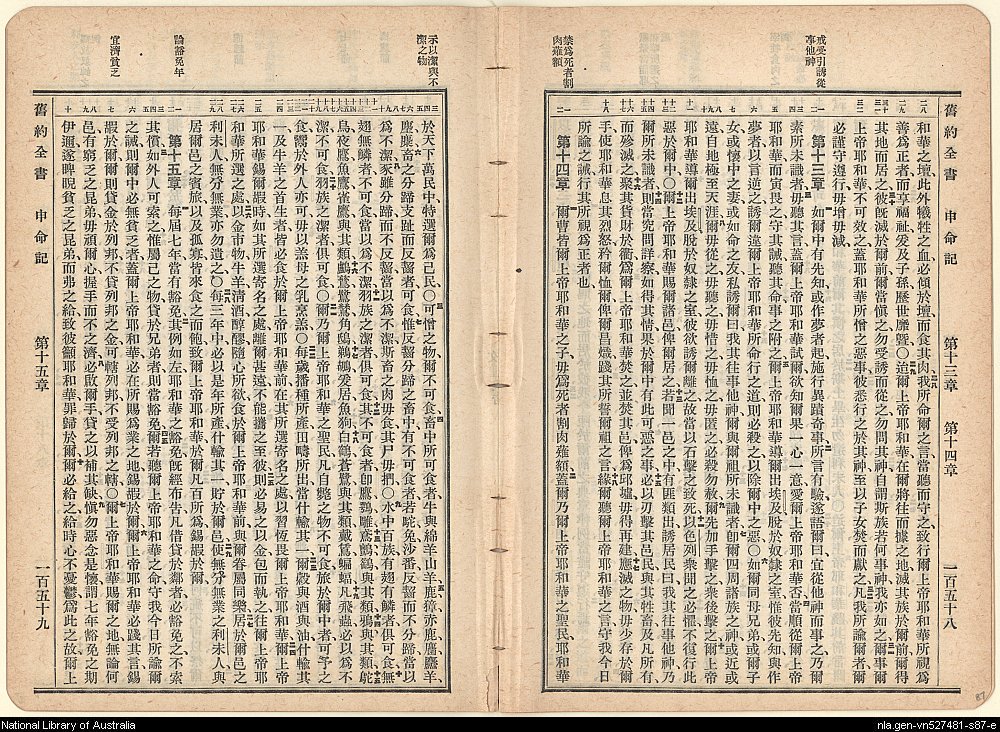 戒受引誘從事他神
禁爲死者割肉薙顙
舊約全書 申命記 第十三章 第十四章 一百五十八
和華之壇此外犧牲之血必傾於壇而食其肉我所命爾之言當聽而守之致行爾上帝耶和華所視爲
善爲正者而享福祉爰及子孫歷世靡曁〇迨爾上帝耶和華在爾將往而據之地滅其族於爾前爾得
其地而居之彼旣滅於爾前爾當愼之勿受誘而從之勿問其神自謂斯族若何事神我亦如之爾事爾
上帝耶和華不可效之蓋耶和華所憎之惡事彼悉行之於其神至以子女焚而獻之凡我所諭爾者爾
必謹守遵行毋增毋減
第十三章 如爾中有先知或作夢者起施行異蹟奇事所言有驗遂語爾曰宜從他神而事之乃爾
素所未識者毋聽其言蓋爾上帝耶和華試爾欲知爾果一心一意愛爾上帝耶和華否當順從爾上帝
耶和華而寅畏之守其誡聽其命事之附之爾上帝耶和華導爾出埃及脫於奴隸之室惟彼先知與作
夢者以言逆之誘爾違爾上帝耶和華所命行之道則必殺之以除爾中之惡〇如爾同母兄弟或爾子
女或懷中之妻或如命之友私誘爾曰我其往事他神爾與爾祖所未識者卽爾四周諸族之神或近或
遠自地極至天涯爾毋從之毋聽之毋惜之毋恤之毋匿之必殺勿赦爾先加手擊之衆後擊之蓋爾上帝
耶和華導爾出埃及脫於奴隸之室彼欲誘爾離之故當以石擊之致死以色列衆聞之必懼不復行此
惡於爾中〇爾上帝耶和華賜爾邑居之若聞一邑之中有匪類出誘居民曰我其往事他神
爾所未識者則當究問詳察如得其情果於爾中有此可惡之事必以刃擊其邑民與其牲畜及凡所有
而殄滅之聚其貨財於衢爲爾上帝耶和華焚之並焚其邑俾爲邱墟毋得再建應滅之物毋少存於爾
手使耶和華息其烈怒矜爾恤爾俾爾昌熾踐其所誓爾祖之言緣爾聽爾上帝耶和華之言守我今日
所諭之誡行其所視爲正者也
第十四章 爾曹皆爾上帝耶和華之子毋爲死者割肉薙額蓋爾乃爾上帝耶和華之聖民耶和華
示以潔與不潔之物
論豁免年
宜濟貧乏
於天下萬民中特選爾爲己民〇可憎之物爾不可食畜中所可食者牛與綿羊山羊鹿獐赤鹿麢麞羊
麈麃畜之分蹄支趾而反芻者可食惟反芻分蹄之畜中有不可食者若駝兔沙番反芻而不分蹄當以
爲不潔豕雖分蹄而不反芻當以爲不潔斯畜之肉毋食其尸毋捫〇水中百族有翅有鱗者俱可食無
翅無鱗者不可食當以爲不潔羽族之潔者俱可食其不可食者卽鷹鶚雕鳶鷂與其類鴉與其類鴕
鳥夜鷹魚鷹雀鷹與其類鵂鶹鷺鷥角鴟鵜鶘爰居魚狗白鶴蒼鷺與其類戴鵀蝙蝠凡飛蟲必以爲不
潔不可食羽族之潔者俱可食〇爾乃爾上帝耶和華之聖民凡自斃之物不可食旅於爾中者可予之
食鬻於外人亦可毋以羔以母之乳烹羔〇每歲播種所產田疇所出當什輸其一爾穀與酒與油什輸其
一及牛羊之首生者皆必食於爾上帝耶和華前在其所選寄名之處以習恆畏爾上帝耶和華爾上帝
耶和華錫爾嘏時如其所選寄名之處離爾甚遠不能攜之至彼則必易之以金包而執之往爾上帝耶
和華所選之處以金市物牛羊清酒醇醪隨心所欲食於爾上帝耶和華前與爾眷屬同樂居於爾邑之
利未人無分無業亦勿遺之〇每三年中必以是年所產什輸其一貯於爾邑使無分無業之利未人與
居爾邑之賓旅以及孤寡皆來食之而飽致爾上帝耶和華於爾凡百所爲錫嘏於爾
第十五章 每屆七年當有豁免其例如左耶和華之豁免旣經布吿凡借貸於鄰者必豁免之不索
其償如外人可索之惟屬己之物貸於兄弟者則當豁免爾若聽爾上帝耶和華之命守我今日所諭爾
之誡則爾中必無貧乏者蓋爾上帝耶和華必在所賜爲業之地錫嘏於爾爾上帝耶和華必踐其言錫
嘏於爾爾則貸金於列邦不貸列邦之金可轄列邦不受列邦之轄〇爾上帝耶和華賜爾之地無論何
邑有窮乏之昆弟毋頑爾心握手而不之濟必啟爾手貸之以補其缺愼勿惡念是懷謂七年豁免之期
伊邇遂睥睨貧乏之昆弟而弗之給致彼籲耶和華罪歸於爾爾必給之給時心不憂鬱爲此之故爾上
舊約全書 申命記 第十五章 一百五十九
87
National Library of Australia
nla.gen-vn527481-s87-e